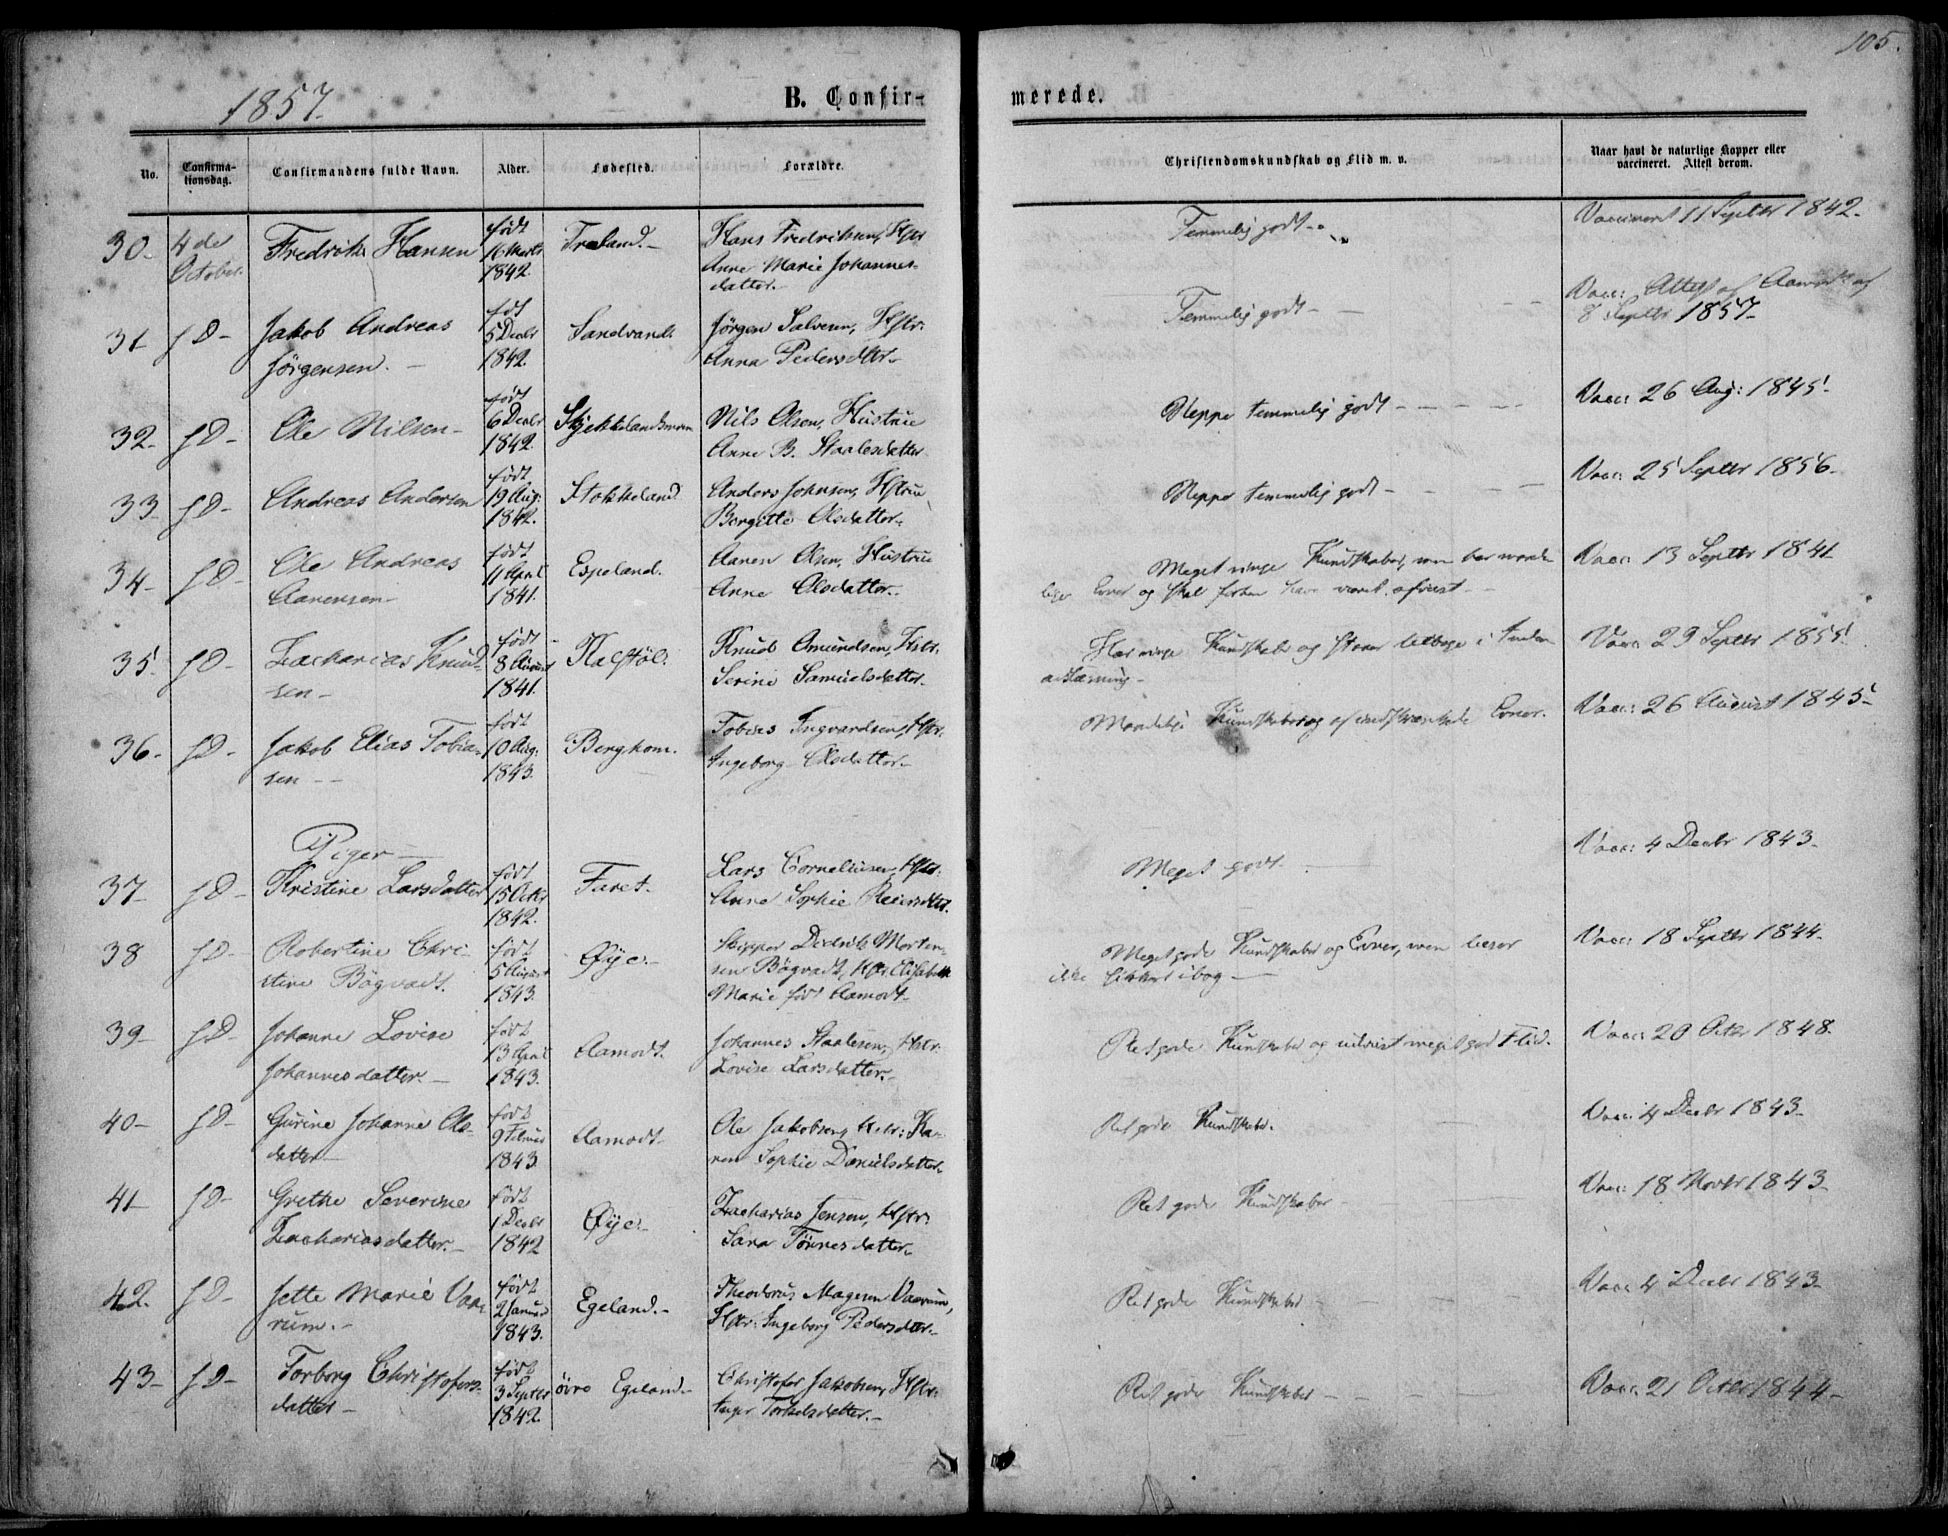 1857.
B. Confir-
merede.
105.
No.
Confirma-
tionsdag.
Confirmandens fulde Navn.
Alder.
Fødested.
Forældre.
Christendomskundskab og Flid m. v.
Naar havt de naturlige Kopper eller
vaccineret. Attest derom.
30. 4de October Fredrik Hansen født 16 Marts 1842. Træland. Hans Fredriksen, Hstr Anne Marie Johannes-
datter. Temmelig godt Vaccineret 11 Septbr 1842.
31 Jakob Andreas
Jörgensen. født 5 Decbr 1842. Sandvand. Jörgen Salvesen, Hstr:
Anna Pedersdtr. Temmelig godt Vacc: Attest af
8 Septbr 1857
32 Ole Nilsen født 6 Decbr 1842. Nils Olsen, Hustrue
Anne B. Staalesdatter Neppe temmelig godt Vacc: 26 Aug: 1845.
33 Andreas Andersen født 19 Aug: 1842. Stokkeland. Anders Johnsen, Hstrue
Bergitte Olsdatter. Neppe temmelig godt Vacc: 25 Septbr 1856
34 Ole Andreas
Aanensen født 11 April 1841. Espeland. Aanen Olsen, Hustrue
Anne Olsdatter. Meget ringe Kundskaber, men har maade-
lige Evner og skal forhen have været afviist Vacc: 13 Septbr 1841
35 Zacharias Knud-
sen født 8 August 1841. Kalstöl. Knud Amundsen, Hstr.
Serine Samuelsdatter. Har ringe Kundskaber og staaer tilbage i
Vacc: 29 Septbr 1855
36 Jakob Elias Tobia-
sen født 10 Aug: 1843. Berghom. Tobias Ingvardsen, Hstr.
Ingeborg Olsdatter Maadelige Kundskaber og af indskrænkede Evner. Vacc: 26 August 1845
Piger
37 Kristine Larsdatter født 15 Octbr 1842. Faret. Lars Corneliusen, Hstr:
Anne Sophie Reiersdtr. Meget godt Vacc: 4 Decbr 1843
38 Robertine Chri-
stine Bögvadt. født 5 August 1843. Øye. Skipper Didrik Morten-
sen Bögvadt, Hstr. Elisabeth
Marie født Aamodt Meget gode Kundskaber og Evner, men læser
ikke sikkert i bog Vacc: 18 Septbr 1844.
39 Johanne Lovise
Johannesdatter. født 13 April 1843. Aamodt. Johannes Staalesen, Hstr:
Lovise Larsdatter. Ret gode Kundskaber og udviist meget god Flid. Vacc: 20 Octbr 1848.
40 Gurine Johanne Ols-
datter født 9 Februar 1843 Aamodt Ole Jakobsen, Hstr: Ka-
ren Sophie Danielsdatter Ret gode Kundskaber. Vacc: 4 Decbr 1843
41 Grethe Severine
Zachariasdatter. født 1 Decbr 1842 Øye Zacharias Jensen, Hstr:
Sara Tönnesdatter. Ret gode Kundskaber Vacc: 18 Novbr 1843
42. Jette Marie Vaa-
rum. født 2 Januar 1843. Egeland. Theodorus Magnun Vaarum,
Hstr: Ingeborg Pedersdtr. Ret gode Kundskaber Vacc 4 Decbr 1843
43 Torborg Christofers-
datter født 3 Septbr 1842 övre Egeland Christofer Jakobsen, Hstr:
Inger Torkelsdatter. Ret gode Kundskaber Vacc: 21 Octbr 1844